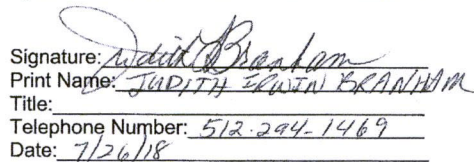 Signature: Judith Branham
Print Name: JUDITH IRWIN BRANHAM
Title:
Telephone Number: 512-294-1469
Date: 7/26/18